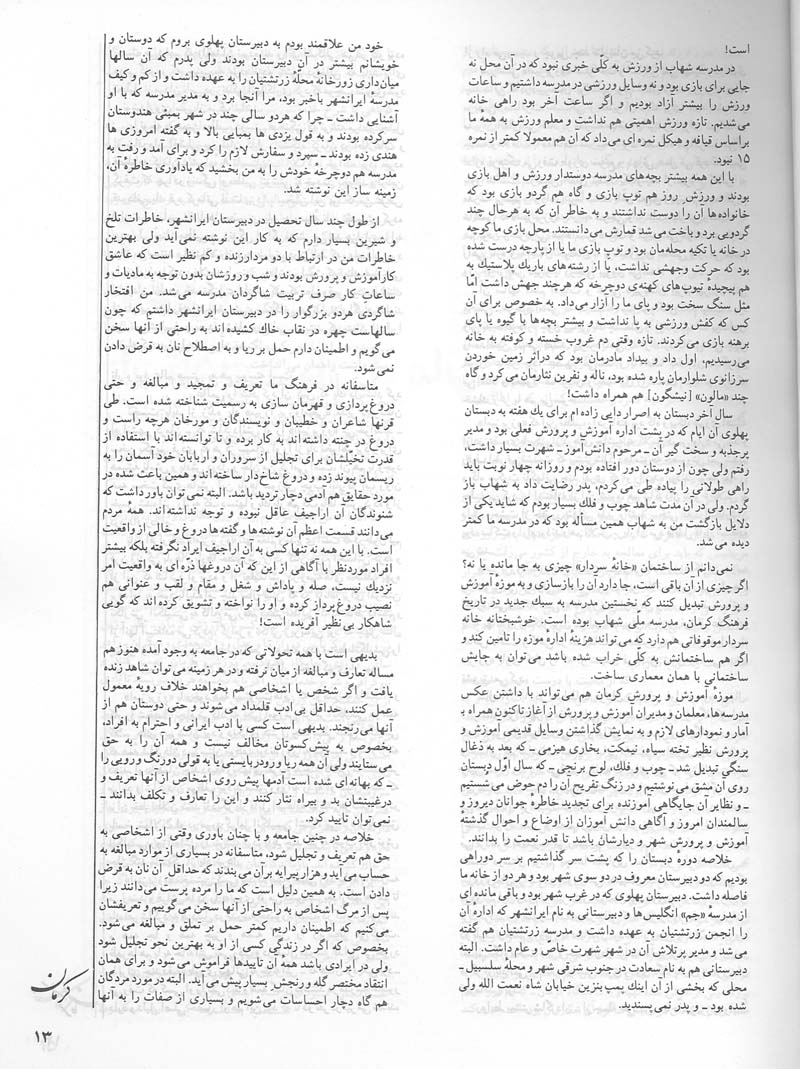 است!
در مدرسه شهاب از ورزش به کلّی خبری نبود که در آن محل نه
جایی برای بازی بود و نه وسایل ورزشی در مدرسه داشتیم و ساعات
ورزش را بیشتر آزاد بودیم و اگر ساعت آخر بود راهی خانه
می‌شدیم. تازه ورزش اهمیتی هم نداشت و معلم ورزش به همهٔ ما
براساس قیافه و هیکل نمره ای می‌داد که آن هم معمولا کمتر از نمره
۱۵ نبود.
با این همه بیشتر بچه‌های مدرسه دوستدار ورزش و اهل بازی
بودند و ورزش روز هم توپ بازی و گاه هم گردو بازی بود که
خانواده‌ها آن را دوست نداشتند و به خاطر آن که به هرحال چند
گردویی برد و باخت می‌شد قمارش می‌دانستند. محل بازی ما کوچه
در خانه یا تکیه محله‌مان بود و توپ بازی ما یا از پارچه درست شده
بود که حرکت وجهشی نداشت، یا از رشته‌های باریك پلاستیك به
هم پیچیدهٔ تیوپ‌های کهنه‌ی دوچرخه که هرچند جهش داشت امّا
مثل سنگ سخت بود و پای ما را آزار می‌داد. به خصوص برای آن
کس که کفش ورزشی به پا نداشت و بیشتر بچه‌ها با گیوه یا پای
برهنه بازی می‌کردند. تازه وقتی دم غروب خسته و کوفته به خانه
می‌رسیدیم، اول داد و بیداد مادرمان بود که دراثر زمین خوردن
سرزانوی شلوارمان پاره شده بود، ناله و نفرین نثارمان می‌کرد و گاه
چند «مالون» [نیشگون] هم همراه داشت!
سال آخر دبستان به اصرار دایی زاده ام برای یك هفته به دبستان
پهلوی آن ایام که در پشت اداره آموزش و پرورش فعلی بود و مدیر
پرجذبه و سخت گیر آن ـ مرحوم دانش‌آموز ـ شهرت بسیار داشت،
رفتم ولی چون از دوستان دور افتاده بودم و روزانه چهار نوبت باید
راهی طولانی را پیاده طی می‌کردم، پدر رضایت داد به شهاب باز
گردم. ولی در آن مدت شاهد چوب و فلك بسیار بودم که شاید یکی از
دلایل بازگشت من به شهاب همین مسأله بود که در مدرسه ما کمتر
دیده می‌شد.
نمی‌دانم از ساختمان «خانهٔ سردار» چیزی به جا مانده یا نه؟
اگر چیزی از آن باقی است، جا دارد آن را بازسازی و به موزهٔ آموزش
و پرورش تبدیل کنند که نخستین مدرسه به سبك جدید در تاریخ
فرهنگ کرمان، مدرسه ملّی شهاب بوده است. خوشبختانه خانه
سردار موقوفاتی هم دارد که می‌تواند هزینهٔ ادارهٔ موزه را تامین کند و
اگر هم ساختمانش به کلّی خراب شده باشد می‌توان به جایش
ساختمانی با همان معماری ساخت.
موزهٔ آموزش و پرورش کرمان هم می‌تواند با داشتن عکس
مدرسه‌ها، معلمان و مدیران آموزش و پرورش از آغاز تاکنون همراه با
آمار و نمودارهای لازم و به نمایش گذاشتن وسایل قدیمی آموزش و
پرورش نظیر تخته سیاه، نیمکت، بخاری هیزمی ـ که بعد به ذغال
سنگی تبدیل شد ـ چوب و فلك، لوح برنجی ـ که سال اول دبستان
روی آن مشق می‌نوشتیم و در زنگ تفریح آن را دم حوض می‌شستیم
ـ و نظایر آن جایگاهی آموزنده برای تجدید خاطرهٔ جوانان دیروز و
سالمندان امروز و آگاهی دانش آموزان از اوضاع و احوال گذشتهٔ
آموزش و پرورش شهر و دیارشان باشد تا قدر نعمت را بدانند.
خلاصه دورهٔ دبستان را که پشت سر گذاشتیم بر سر دوراهی
بودیم که دو دبیرستان معروف در دو سوی شهر بود و هر دو از خانه ما
فاصله داشت. دبیرستان پهلوی که در غرب شهر بود و باقی مانده ای
از مدرسهٔ «جم» انگلیس‌ها و دبیرستانی به نام ایرانشهر که ادارهٔ آن
را انجمن زرتشتیان به عهده داشت و مدرسه زرتشتیان هم گفته
می‌شد و مدیر پرتلاش آن در شهر شهرت خاص و عام داشت. البته
دبیرستانی هم به نام سعادت در جنوب شرقی شهر و محلهٔ سلسبیل ـ
محلی که بخشی از آن اینك پمپ بنزین خیابان شاه نعمت الله ولی
شده بود ـ و پدر نمی‌پسندید.
خود من علاقمند بودم به دبیرستان پهلوی بروم که دوستان و
خویشانم بیشتر در آن دبیرستان بودند ولی پدرم که آن سالها
میان‌داری زورخانهٔ محلهٔ زرتشتیان را به عهده داشت و از کم و کیف
مدرسهٔ ایرانشهر باخبر بود، مرا آنجا برد و به مدیر مدرسه که با او
آشنایی داشت ـ چرا که هردو سالی چند در شهر بمبئی هندوستان
سرکرده بودند و به قول یزدی ها بمبایی بالا و به گفته امروزی ها
هندی زده بودند ـ سپرد و سفارش لازم را کرد و برای آمد و رفت به
مدرسه هم دوچرخهٔ خودش را به من بخشید که یادآوری خاطرهٔ آن،
زمینه ساز این نوشته شد.
از طول چند سال تحصیل در دبیرستان ایرانشهر، خاطرات تلخ
و شیرین بسیار دارم که به کار این نوشته نمی‌آید ولی بهترین
خاطرات من در ارتباط با دو مردارزنده و کم نظیر است که عاشق
کارآموزش و پرورش بودند و شب و روزشان بدون توجه به مادیات و
ساعات کار صرف تربیت شاگردان مدرسه می‌شد. من افتخار
شاگردی هردو بزرگوار را در دبیرستان ایرانشهر داشتم که چون
سالهاست چهره در نقاب خاك کشیده‌اند به راحتی از آنها سخن
می‌گویم و اطمینان دارم حمل بر ریا و به اصطلاح نان به قرض دادن
نمی‌شود.
متاسفانه در فرهنگ ما تعریف و تمجید و مبالغه و حتی
دروغ‌پردازی و قهرمان سازی به رسمیت شناخته شده است. طی
قرنها شاعران و خطیبان و نویسندگان و مورخان هرچه راست و
دروغ در چنته داشته‌اند به کار برده و تا توانسته‌اند با استفاده از
قدرت تخیّلشان برای تجلیل از سروران و اربابان خود آسمان را به
ریسمان پیوند زده و دروغ شاخ‌دار ساخته‌اند و همین باعث شده در
مورد حقایق هم آدمی دچار تردید باشد. البته نمی‌توان باور داشت که
شنوندگان آن اراجیف عاقل نبوده و توجه نداشته‌اند. همهٔ مردم
می‌دانند قسمت اعظم آن نوشته‌ها و گفته‌ها دروغ و خالی از واقعیت
است. با این همه نه تنها کسی به آن اراجیف ایراد نگرفته بلکه بیشتر
افراد موردنظر با آگاهی از این که آن دروغها ذرّه ای به واقعیت امر
نزدیك نیست، صله و پاداش و شغل و مقام و لقب و عنوانی هم
نصیب دروغ پرداز کرده و او را نواخته و تشویق کرده اند که گویی
شاهکار بی‌نظیر آفریده است!
بدیهی است با همه تحولاتی که در جامعه به وجود آمده هنوز هم
مساله تعارف و مبالغه از میان نرفته و در هر زمینه می‌توان شاهد زنده
یافت و اگر شخص یا اشخاصی هم بخواهند خلاف رویهٔ معمول
عمل کنند، حداقل بی‌ادب قلمداد می‌شوند و حتی دوستان هم از
آنها می‌رنجند. بدیهی است کسی با ادب ایرانی و احترام به افراد،
بخصوص به پیش‌کسوتان مخالف نیست و همه آن را به حق
می‌ستایند ولی آن همه ریا ورودربایستی یا به قولی دورنگ ورویی را
ـ که بهانه‌ای شده است آدمها پیش روی اشخاص از آنها تعریف و
درغیبتشان بد و بیراه نثار کنند و این را تعارف و تکلف بدانند ـ
نمی‌توان تایید کرد.
خلاصه در چنین جامعه و با چنان باوری وقتی از اشخاصی به
حق هم تعریف و تجلیل شود، متاسفانه در بسیاری از موارد مبالغه به
حساب می‌آید و هزار پیرایه بر آن می‌بندند که حداقل آن نان به قرض
دادن است. به همین دلیل است که ما را مرده پرست می‌دانند زیرا
پس از مرگ اشخاص به راحتی از آنها سخن می‌گوییم و تعریفشان
می‌کنیم که اطمینان داریم کمتر حمل بر تملق و مبالغه می‌شود.
بخصوص که اگر در زندگی کسی از او به بهترین نحو تجلیل شود
ولی در ایرادی باشد همهٔ آن تاییدها فراموش می‌شود و برای همان
انتقاد مختصر گله و رنجش بسیار پیش می‌آید. البته در مورد مردگان
هم گاه دچار احساسات می‌شویم و بسیاری از صفات را به آنها
کرمان
۱۳